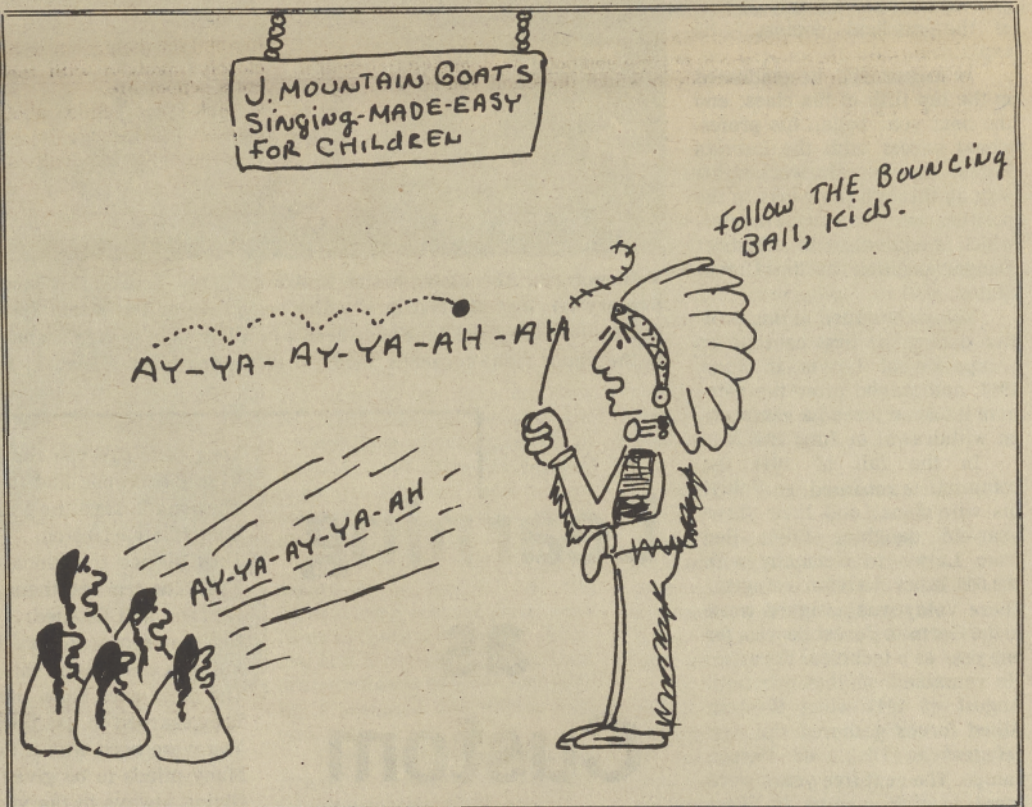 J. MOUNTAIN GOATS
SINGING-MADE-EASY
FOR CHILDREN
FOLLOW THE BOUNCING
BALL, KIDS.
AY-YA-AY-YA-AH-AH
AY-YA-AY-YA-AH